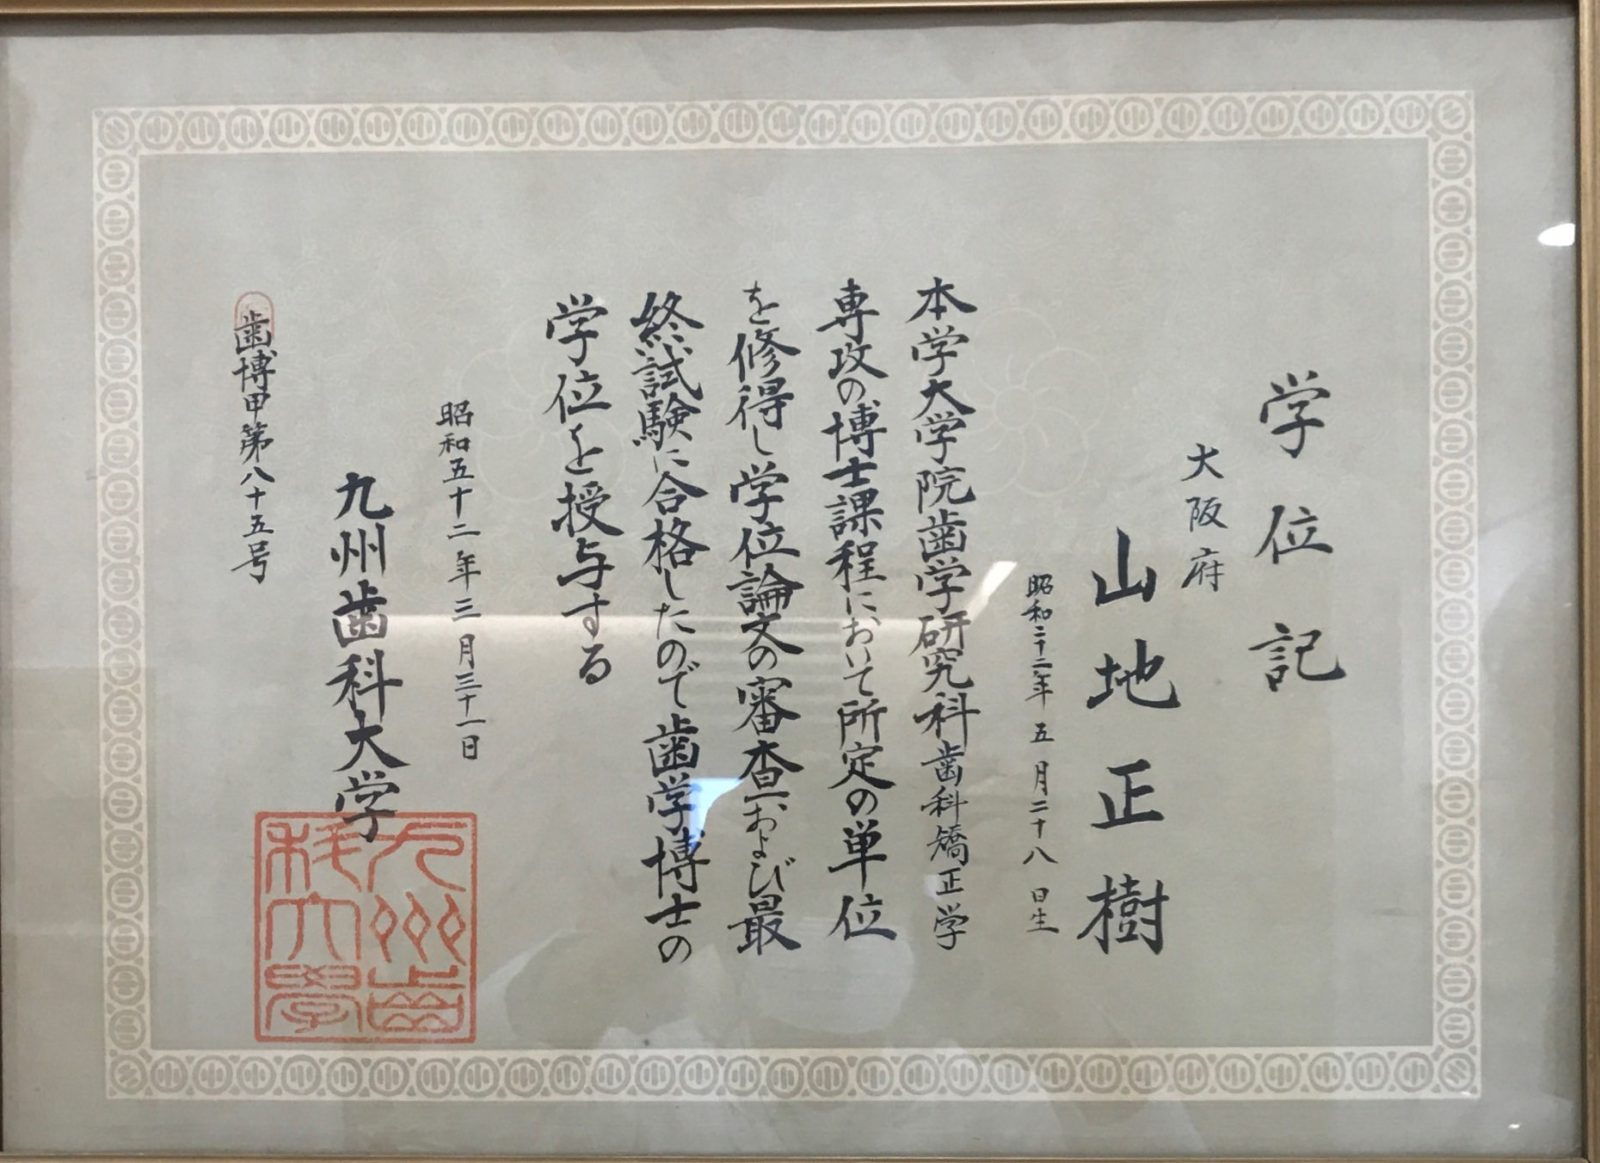 学位記
大阪府
山地正樹
昭和二十二年五月二十八日生
本学大学院歯学研究科歯科矯正学
専攻の博士課程において所定の単位
を修得し学位論文の審査および最
終試験に合格したので歯学博士の
学位を授与する
昭和五十二年三月三十一日
九州歯科大学
九州歯科大學
歯博甲第八十五号